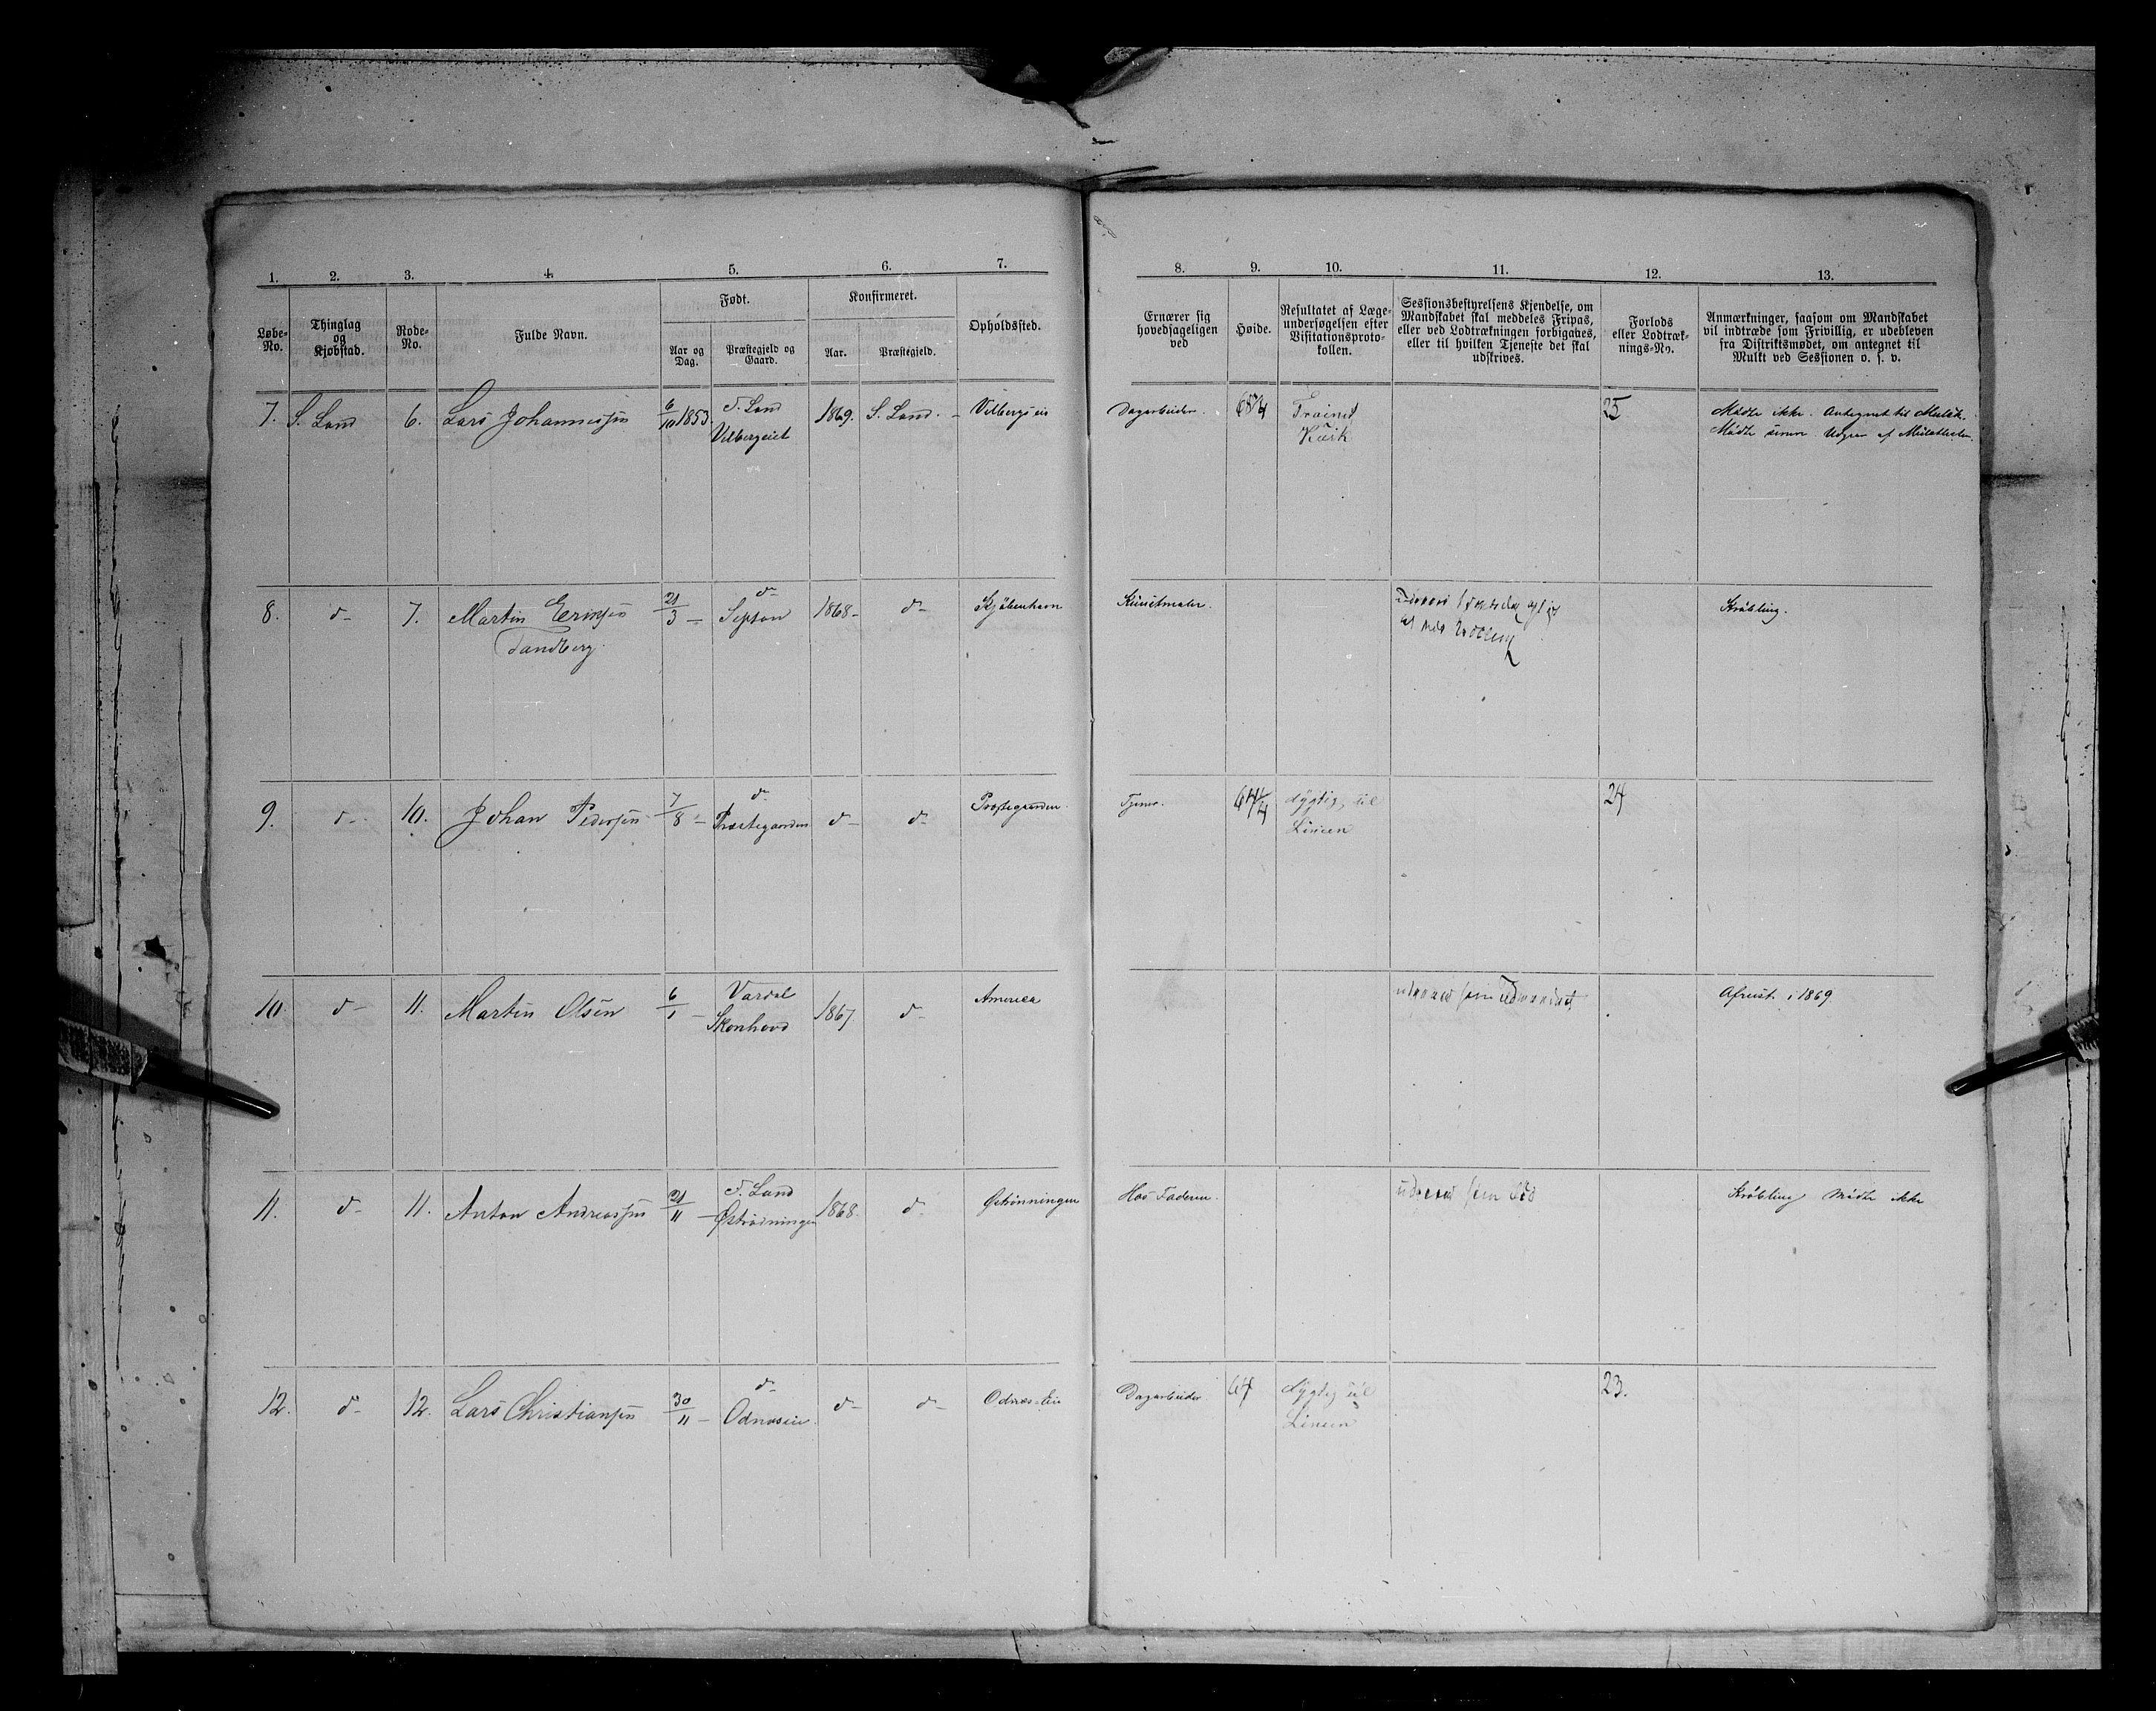 1. 2. 3. 4. 5. 6. 7.
Løbe-No.
Thinglag og Kjøbstad.
Rode-No.
Fulde Navn.
Født.
Aar og Dag.
Præstegjeld og Gaard.
Konfirmeret.
Aar.
Præstegjeld.
Opholdssted.
8. 9. 10. 11. 12. 13.
Ernærer sig hovedsageligen ved
Høide.
Resultatet af Læge-
undersøgelsen efter
Visitationsproto-
kollen.
Sessionsbestyrelsens Kjendelse, om
Mandskabet skal meddeles Fripas,
eller ved Lodtrækningen forbigaaes,
eller til hvilken Tjeneste det skal
udskrives.
Forlods
eller Lodtræk-
nings-No.
Anmærkninger, saasom om Mandskabet
vil indtræde som Frivillig, er udebleven
fra Distriktsmødet, om antegnet til
Mulkt ved Sessionen o. s. v.
7. S. Land 6. Lars Johannessen 6/10 1853 S. Land 1869. S. Land. Vilbergseie
Vilbergeiet
Dagarbeider. 68 Trainet 25 Mødte ikke. Antegnet til Mulct.
Kusk Mødte
8. d- 7. Martin Eriksen 21/3 - d- 1868- d- Kjøbenhavn
Tandberg.
Kunstmaler. Krøbling.
9. d- 10. Johan Pedersen 7/8 - d- Præstegaarden d- d- Præstegaarden.
Tjener. 64 dygtig til 24
Linien
10. d- 11. Martin Olsen 6/1 - Vardal 1867. d- America
Skonhovd
Afreist i 1869.
11. d- 11. Anton Andreassen 21/11 - S. Land 1868. d-
Hos Faderen. som Krøbling Mødte ikke
12. d- 12. Lars Christiansen 30/11 - d- d- d- Odnæs-Eie
Odnæseie
Dagarbeider 64 dygtig til 23.
Linien